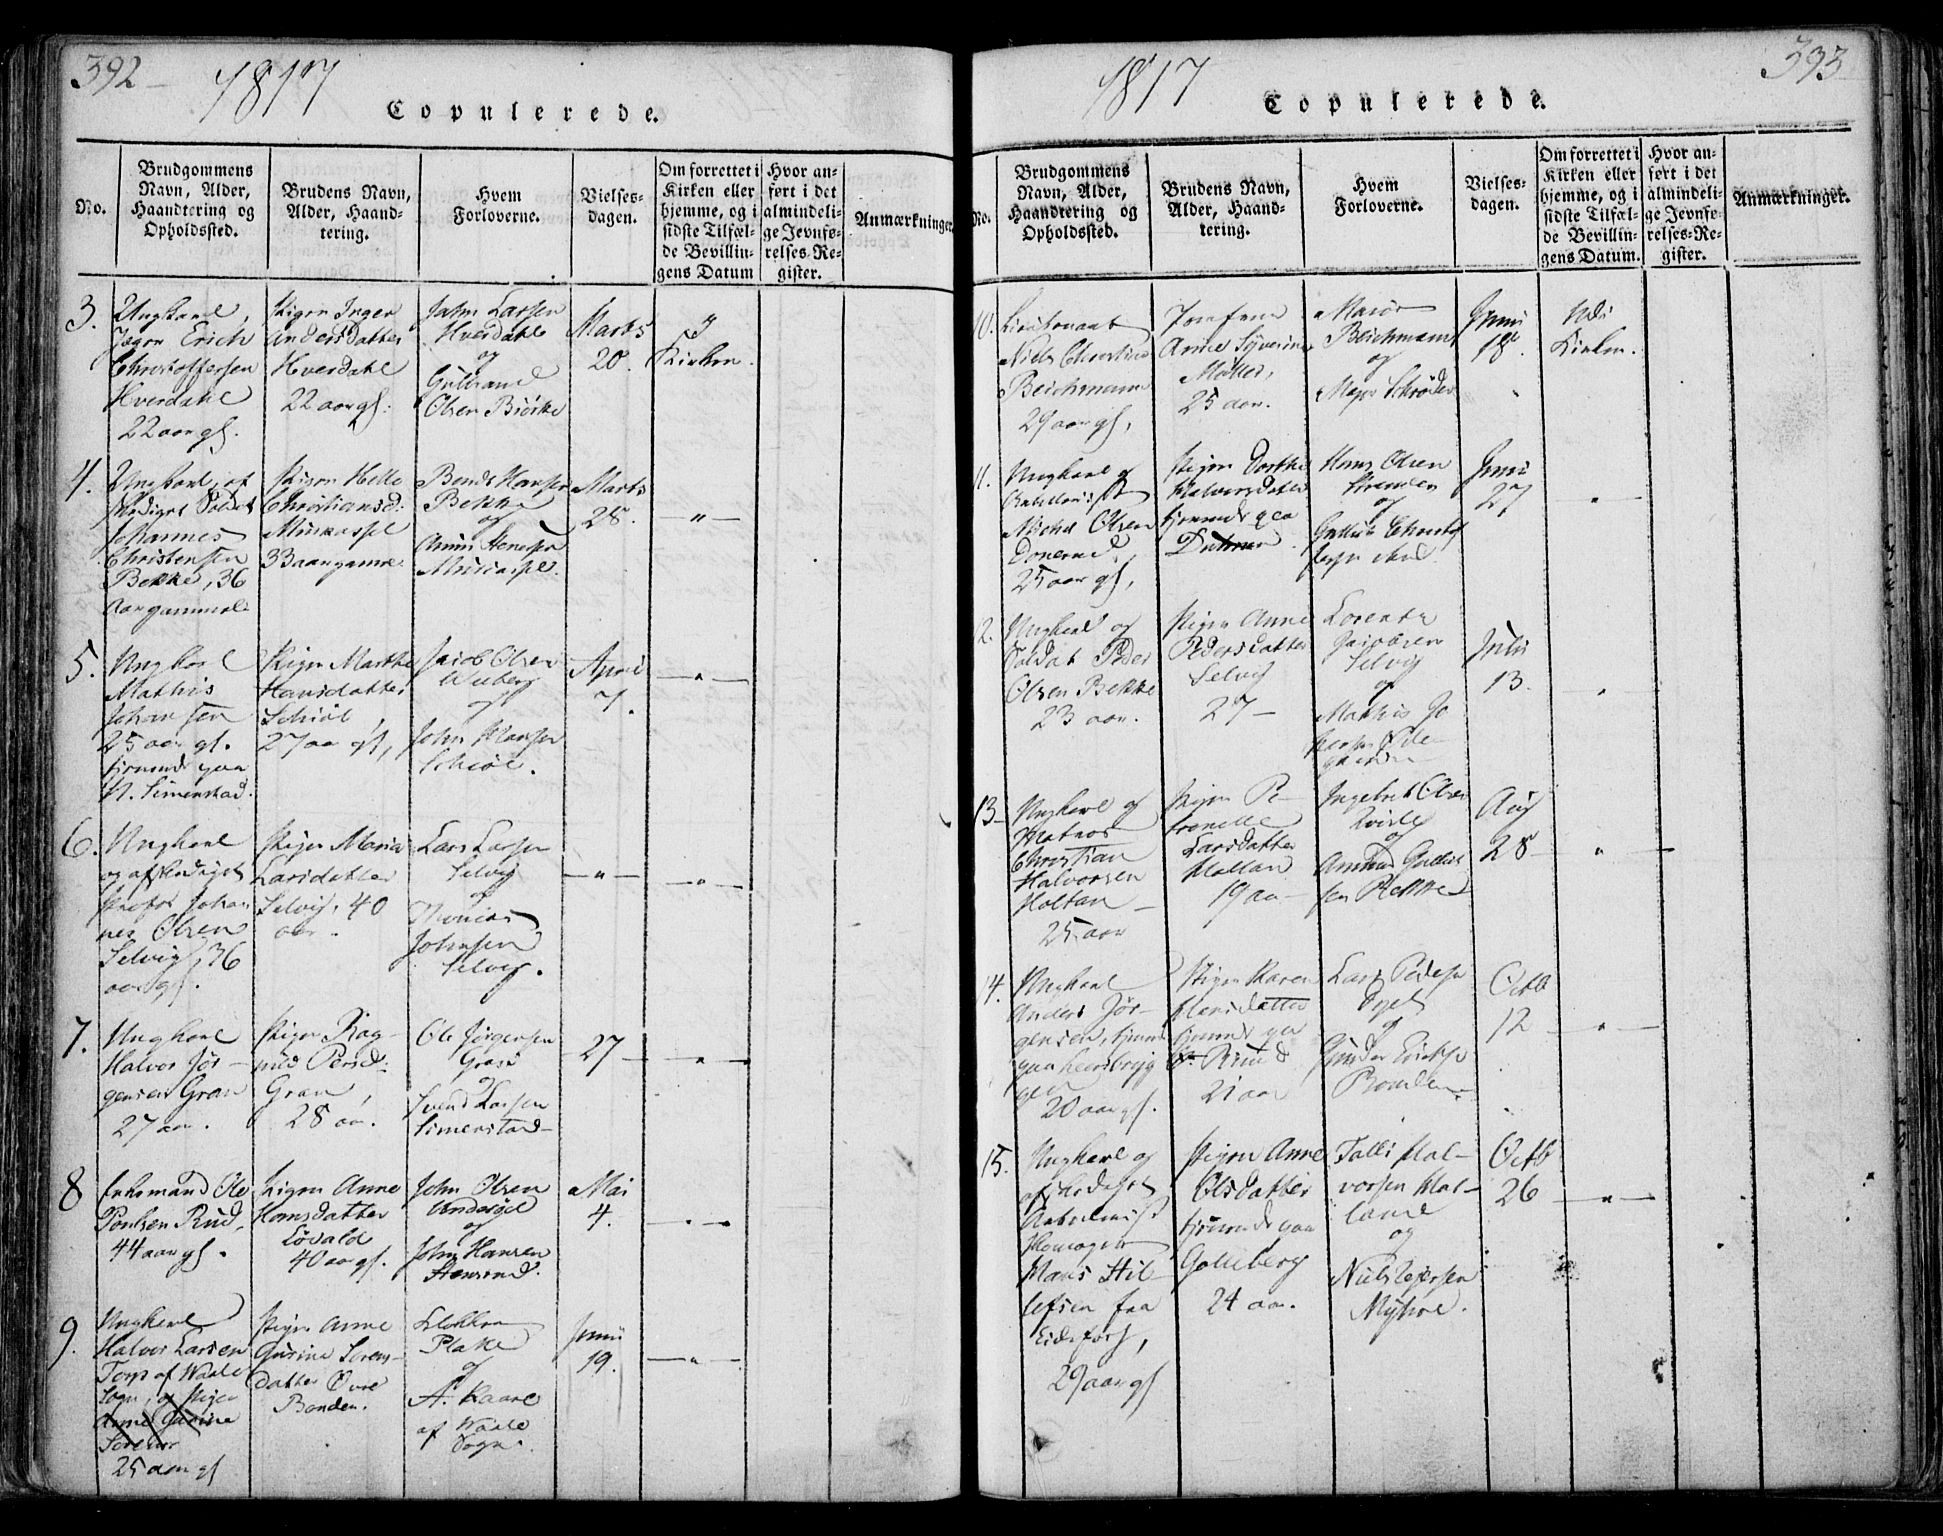 392
1817
Copulerede.
No.
Brudgommens
Navn, Alder,
Haandtering og
Opholdssted.
Brudens Navn,
Alder, Haand-
tering.
Hvem
Forloverne.
Vielses-
dagen.
Om forrettet i
Kirken eller
hjemme, og i
sidste Tilfæl-
de Bevillin-
gens Datum
Hvor an-
ført i det
almindeli-
ge Jevnfø-
relses-Re-
gister.
Anmærkninger.
3.
Ungkarl,
Jæger Erich
Christoffersen
Hverdahl
22 aar gl.
Pigen Inger
Andersdatter
Hverdahl
22 aar gl.
John Larsen
Hverdahl
og
Gulbrand
Olsen Biørke
Marts
20.
I
Kirken.
4.
Ungkarl, af
skediget Soldat
Johannes
Christensen
Bekke, 36
aar gammel
Pigen Helle
Christiansd.
33 aar gamle
Bendt Hansen
Bekke
og
Marts
28.
—"—
5.
Ungkarl
Mathis
Johansen
25 aar gl.
tjenende paa
N. Simenstad.
Pigen Marthe
Hansdatter
Schiøl,
27 aar gl,
Jacob Olsen
og
John Hansen
Schiøl.
April
7.
—"—
6.
Ungkarl
og afskediget
Johan
nes Olsen
Selvig, 36
aar gl.
Pigen Maria
Larsdatter
Selvig, 40
aar.
Lars Larsen
Selvig
og
Johnsen
Selvig.
—"—
—"—
7.
Ungkarl
Halvor Jør-
gensen Gran
27 aar.
Pigen Rag-
nild Persd.
Gran,
28 aar.
Ole Jørgensen
og
Svend Larsen
Simenstad
27
—"—
8
Enkemand Ole
Poulsen Rud,
44 aar gl.
Pigen Anne
Hansdatter
Løvald
40 aar gl.
John Olsen
og
John Hansen
Stensrud.
Mai
4.
—"—
9.
Ungkarl
Halvor Larsen
Torp af Waale
Sogn, og Pigen
Anne Gurine
25 aar gl
Pigen Anne
Gurine Sørens-
datter Øvre
Bonden.
Klokker
Plake
og
A. Kaare
af Waale
Sogn.
Junii
19.
—"—
393
1817
Copulerede.
No.
Brudgommens
Navn, Alder,
Haandtering og
Opholdssted.
Brudens Navn,
Alder, Haand-
tering.
Hvem
Forloverne.
Vielses-
dagen.
Om forrettet i
Kirken eller
hjemme, og i
sidste Tilfæl-
de Bevillin-
gens Datum.
Hvor an-
ført i det
almindeli-
ge Jevnfø-
relses-Re-
gister.
Anmærkninger.
10.
Lieutenant
Niels Christian
Beichmann
29 aar gl,
Jomfrue
Anne Syverine
Møller,
25 aar.
Major
Beichmann
og
Major Schrøder
Junii
18
Udi
Kirken.
11.
Ungkarl og
Michel Olsen
25 aar gl,
Pigen Dorthe
Halvorsdatter
tjenende paa
Hans Olsen
og
Junii
27
"
12.
Ungkarl og
Soldat Peder
Olsen Bekke
23 aar.
Pigen Anne
Pedersdatter
Selvig
27 —
Lorentz
Jacobsen
Selvig
og
Mathis Jo
Julii
13.
"
13
Ungkarl og
Matros
Christian
Halvorsen
Holtan
25 aar
Pigen Pe-
tronelle
Larsdatter
Holtan
19 aar
Ingebret Olsen
og
Amund Gulbrand
sen Bekke
Aug
28
"
14.
Ungkarl
Anders Jør-
gensen, tjenende
paa
20 aar gl.
Pigen Karen
Hansdatter
tjenende paa
Ø. Riiud
21 aar
Lars Peders
og
Gunder Erichs
Bonden.
Octb
12
—"—
15.
Ungkarl og
afskediget
Mans Hil-
lefsen fra
Eidsfoss,
29 aar gl
Pigen Anne
Olsdatter
tjenende paa
Golleberg
24 aar.
Talle Hal-
vorsen
og
Niels
Myhre.
Octb
26
—"—